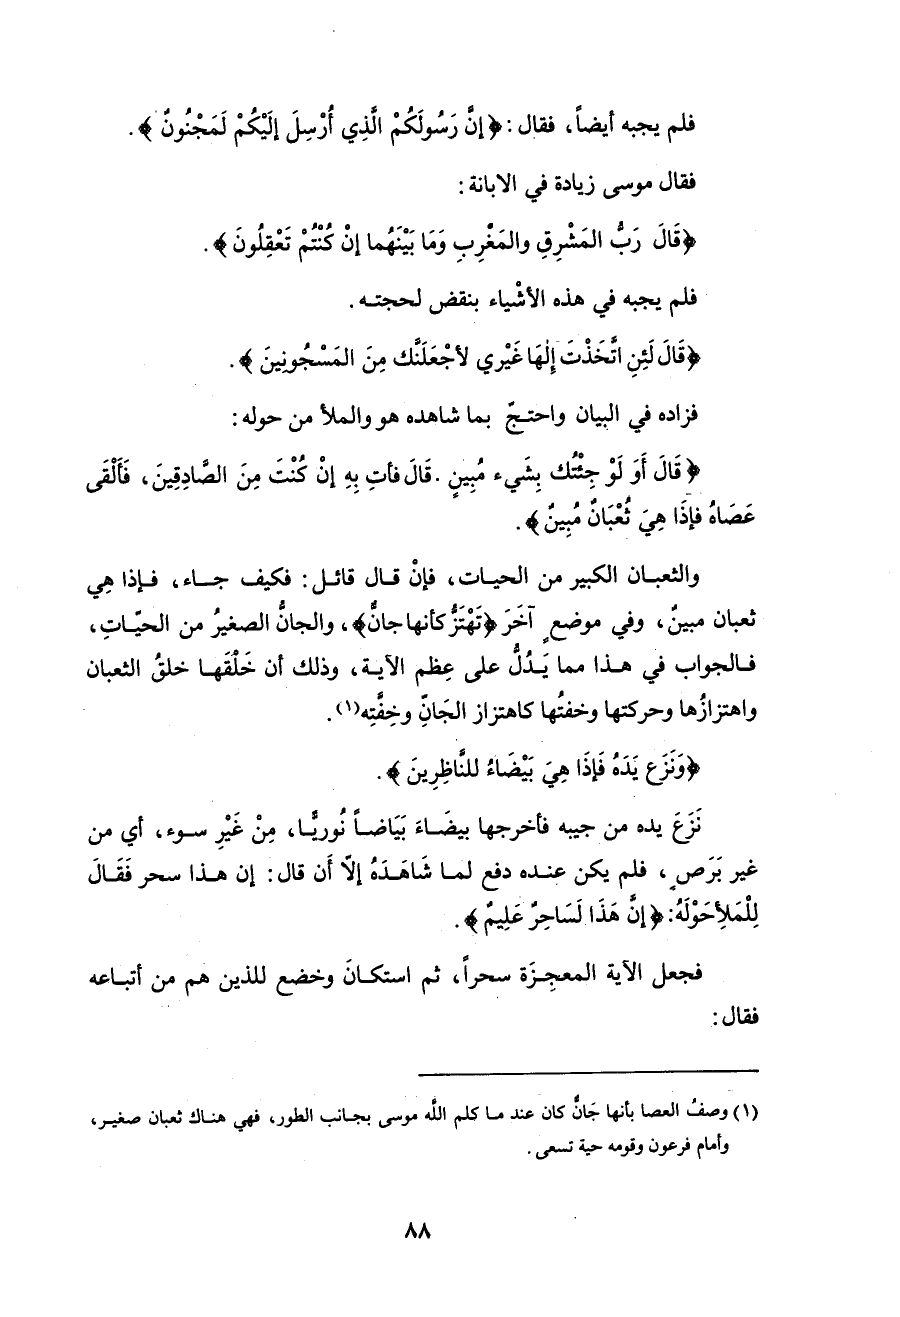 فلم يجبه أيضاً، فقال: ﴿إنَّ رَسُولَكُمْ الَّذِي أُرْسِلَ إلَيْكُمْ لَمَجْنُونٌ﴾.
فقال موسى زيادة في الابانة:
﴿قَالَ رَبُّ المَشْرِقِ والمَغْرِبِ وَمَا بَيْنَهُما إنْ كُنْتُمْ تَعْقِلُونَ﴾.
فلم يجبه في هذه الأشْياء بنقض لحجتـه.
﴿قَالَ لَئِنِ اتَّخَذْتَ إلٰهَا غَيْرِي لأجْعَلَنَّك مِنَ المَسْجُونِينَ﴾.
فزاده في البيان واحتـجّ بما شاهده هو والملأ من حوله:
﴿قَالَ أوَ لَوْ جِئْتُك بِشَيء مُبِينٍ. قَالَ فأتِ بِهِ إنْ كُنْتَ مِنَ الصَّادِقِينَ، فَأَلْقَى
عَصَاهُ فإذَا هِيَ ثُعْبَانٌ مُبِينٌ﴾.
والثعبـان الكبير من الحيـات، فإنْ قـال قائـل: فكيف جـاء، فـإذا هِي
ثعبان مبينٌ، وفي موضعٍ آخَرَ ﴿تَهْتَزُّ كأنها جانٌّ﴾، والجانُّ الصغيرُ من الحيّـاتِ،
فـالجواب في هـذا مما يَـدُلُّ على عِظم الآيـة، وذلك أن خَلْقَهـا خلقُ الثعبان
واهتزازُها وحركتها وخفتُها كاهتزاز الجَانّ وخِفَّتِه(١).
﴿وَنَزَع يَدَهُ فَإذَا هِيَ بَيْضَاءُ للنَّاظِرِينَ﴾.
نَزَعَ يده من جيبه فأخرجها بيضَـاءَ بَيَاضـاً نُوريًّـا، مِنْ غَيْرِ سـوء، أي من
غير بَرَصٍ، فلم يكن عنـده دفع لمـا شَاهَـدَهُ إلاّ أَن قال: إن هـذا سحر فَقَـالَ
لِلْمَلأِحَوْلَهُ: ﴿إنَّ هَذَا لَسَاحِرٌ عَلِيمٌ﴾.
فجعل الآية المعجِـزَة سحراً، ثم استكـانَ وخضع للذين هم من أتبـاعه
فقال:
(١) وصفُ العصا بأنها جَانٌّ كان عند مـا كلم اللَّه موسى بجـانب الطور، فهي هنـاك ثعبان صغيـر،
وأمام فرعون وقومه حية تسعى.
٨٨